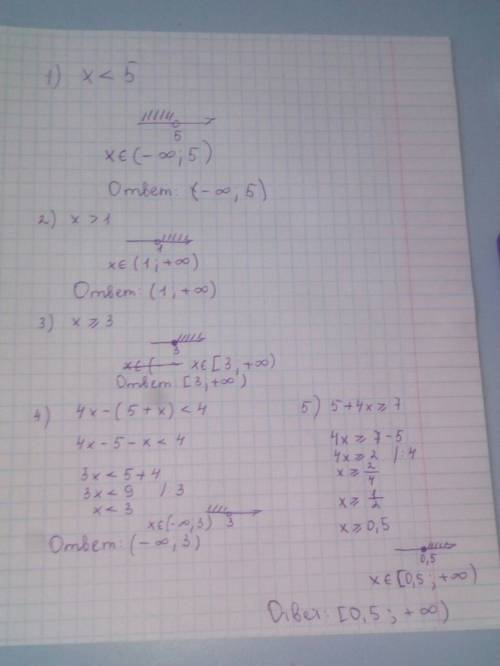 1) x < 5
5
x ∈ (-∞; 5)
Ответ: (-∞, 5)
2) x > 1
1
x ∈ (1; +∞)
Ответ: (1, +∞)
3) x ⩾ 3
3
x ∈ [3, +∞)
Ответ: [3; +∞)
4) 4x - (5 + x) < 4
4x - 5 - x < 4
3x < 5 + 4
3x < 9 / 3
x < 3
3
x ∈ (-∞, 3)
Ответ: (-∞, 3)
5) 5 + 4x ⩾ 7
4x ⩾ 7 - 5
4x ⩾ 2 /: 4
x ⩾ 2/4
x ⩾ 1/2
x ⩾ 0,5
0,5
x ∈ [0,5; +∞)
Ответ: [0,5; +∞)